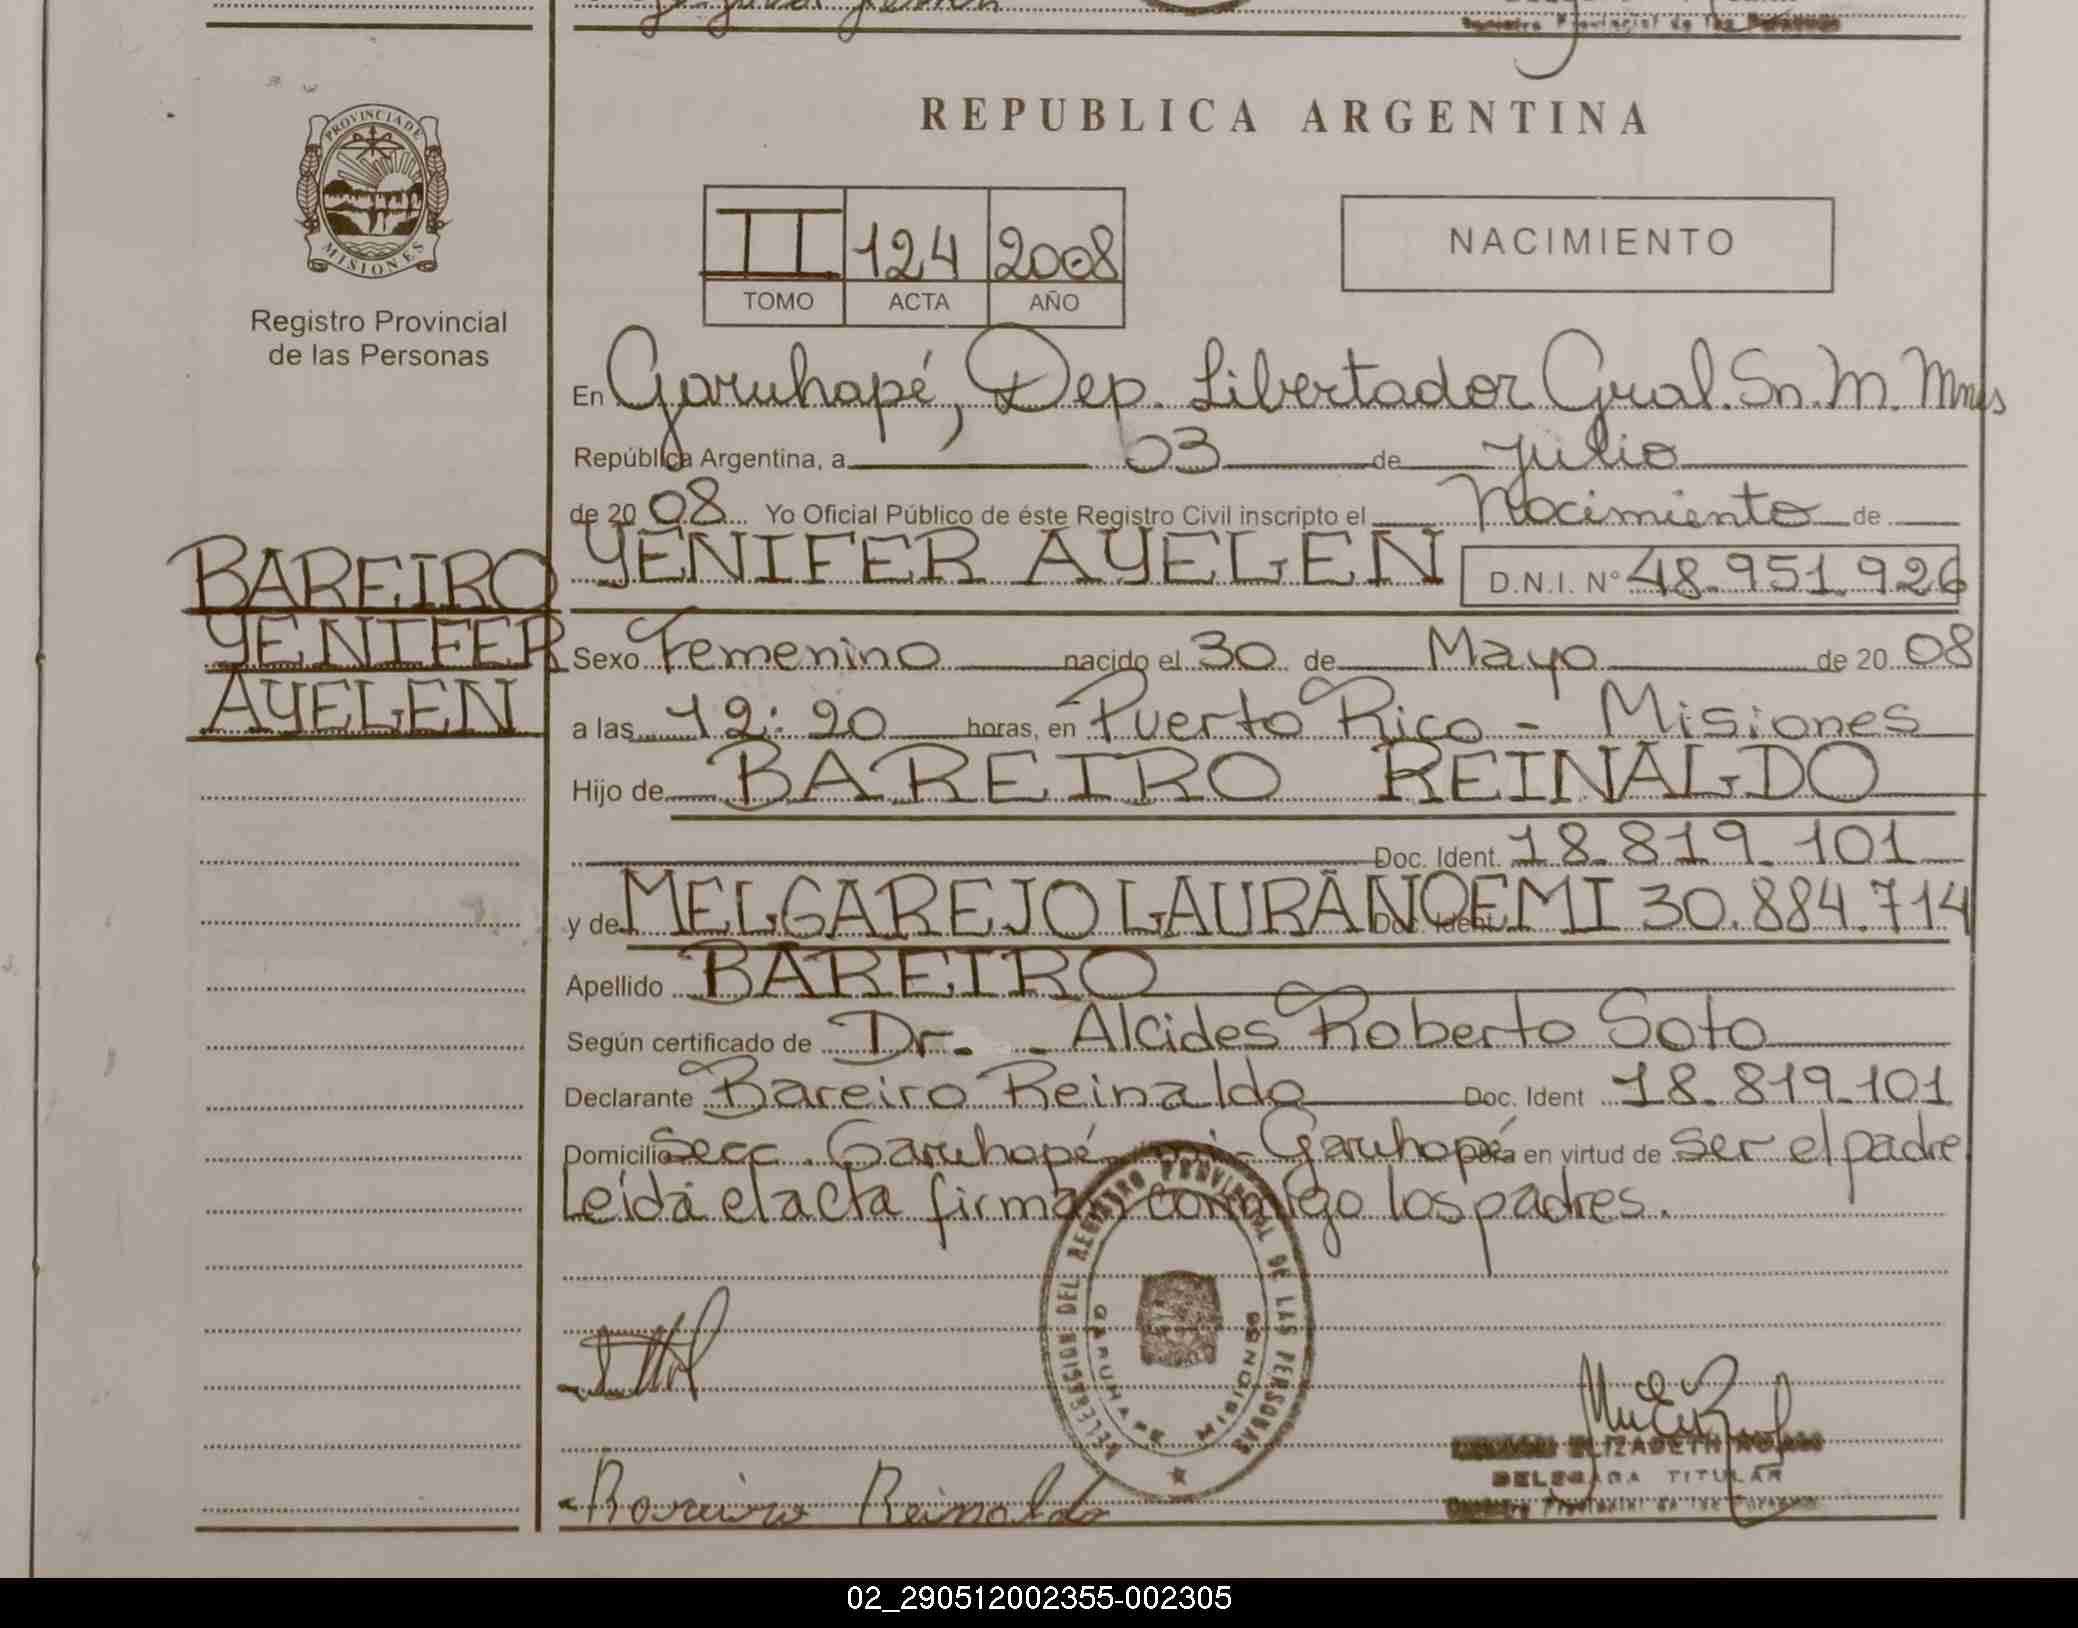 REPUBLICA ARGENTINA
PROVINCIA DE
MISIONES
Registro Provincial
de las Personas
II 124 2008
TOMO ACTA AÑO
NACIMIENTO
En Garuhapé, Dep. Libertador Gral. Sn. M. Mnes
República Argentina, a 03 de julio
de 20 08 Yo Oficial Público de éste Registro Civil inscripto el Nacimiento de
BAREIRO
YENIFER
AYELEN
YENIFER AYELEN D.N.I. Nº 48.951.926
Sexo Femenino nacido el 30 de Mayo de 20 08
a las 12:20 horas, en Puerto Rico - Misiones
Hijo de BAREIRO REINALDO
Doc. Ident. 18.819.101
y de MELGAREJO LAURA NOEMI Doc. Ident. 30.884.714
Apellido BAREIRO
Según certificado de Dr. Alcides Roberto Soto
Declarante Bareiro Reinaldo Doc. Ident 18.819.101
Domicilio Secc. Garuhapé - mi - Garuhapé en virtud de ser el padre
Leída el acta firman conmigo los padres.
DELEGACION DEL REGISTRO PROVINCIAL DE LAS PERSONAS
GARUHAPE MISIONES
Bareiro Reinaldo
ELIZABETH
DELEGADA TITULAR
Registro Provincial de las Personas
02_290512002355-002305